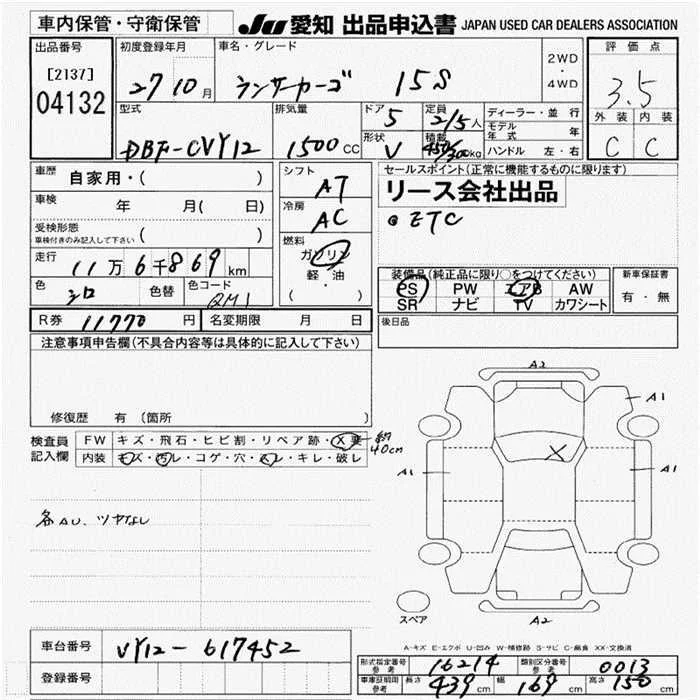 車内保管・守衛保管
JU 愛知 出品申込書 JAPAN USED CAR DEALERS ASSOCIATION
出品番号
[2137]
04132
初度登録年月
27 10月
車名・グレード
ランサーカーゴ 15S
2WD
・
4WD
評価点
3.5
外装 内装
C C
型式
DBF-CVY12
排気量
1500CC
ドア
5
形状
V
定員
2/5人
積載
450/300kg
ディーラー・並行
モデル年式 年
ハンドル 左・右
車歴 自家用・( )
車検 年 月( 日)
受検形態
車検付きのみ記入して下さい ( )
走行 11万6千869km
色 シロ 色替 色コード QM1
シフト
AT
冷房
AC
燃料
ガソリン
軽・油
( ・ )
セールスポイント(正常に機能するものに限ります)
リース会社出品
◎ETC
装備品(純正品に限り○をつけてください)
PS PW エアB AW
SR ナビ TV カワシート
新車保証書
有・無
R券 11770円 名変期限 月 日
後日品
注意事項申告欄(不具合内容等は具体的に記入して下さい)
修復歴 有 (箇所 )
検査員
記入欄
FW キズ・飛石・ヒビ割・リペア跡・X要
約40cm
内装 キズ・汚レ・コゲ・穴・スレ・キレ・破レ
各AU、ツヤなし
A2
A1
X
A1
A1
スペア
A2
A-キズ E-エクボ U-凹み W-補修跡 S-サビ C-腐食 XX-交換済
車台番号 VY12-617452
登録番号
形式指定番号
参考
16214
類別区分番号
参考
0013
車庫証明用
参考
長さ 439cm 幅 169cm 高さ 150cm